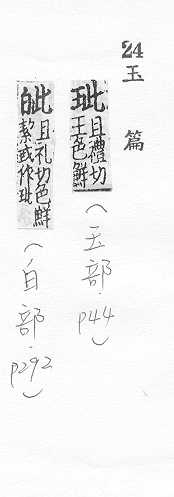 24
玉篇
玼 且禮切
玉色鮮
(玉部·P44)
皉 且礼切色鮮
絜或作玼
(白部·P292)